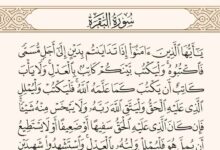 سُورَةُ البَقَرَةِ
يَٰٓأَيُّهَا ٱلَّذِينَ ءَامَنُوٓا۟ إِذَا تَدَايَنتُم بِدَيْنٍ إِلَىٰٓ أَجَلٍ مُّسَمًّى
فَٱكْتُبُوهُ وَلْيَكْتُب بَّيْنَكُمْ كَاتِبٌۢ بِٱلْعَدْلِ وَلَا يَأْبَ
كَاتِبٌ أَن يَكْتُبَ كَمَا عَلَّمَهُ ٱللَّهُ فَلْيَكْتُبْ وَلْيُمْلِلِ
ٱلَّذِى عَلَيْهِ ٱلْحَقُّ وَلْيَتَّقِ ٱللَّهَ رَبَّهُۥ وَلَا يَبْخَسْ مِنْهُ شَيْـًٔا
فَإِن كَانَ ٱلَّذِى عَلَيْهِ ٱلْحَقُّ سَفِيهًا أَوْ ضَعِيفًا أَوْ لَا يَسْتَطِيعُ
أَن يُمِلَّ هُوَ فَلْيُمْلِلْ وَلِيُّهُۥ بِٱلْعَدْلِ وَٱسْتَشْهِدُوا۟ شَهِيدَيْنِ